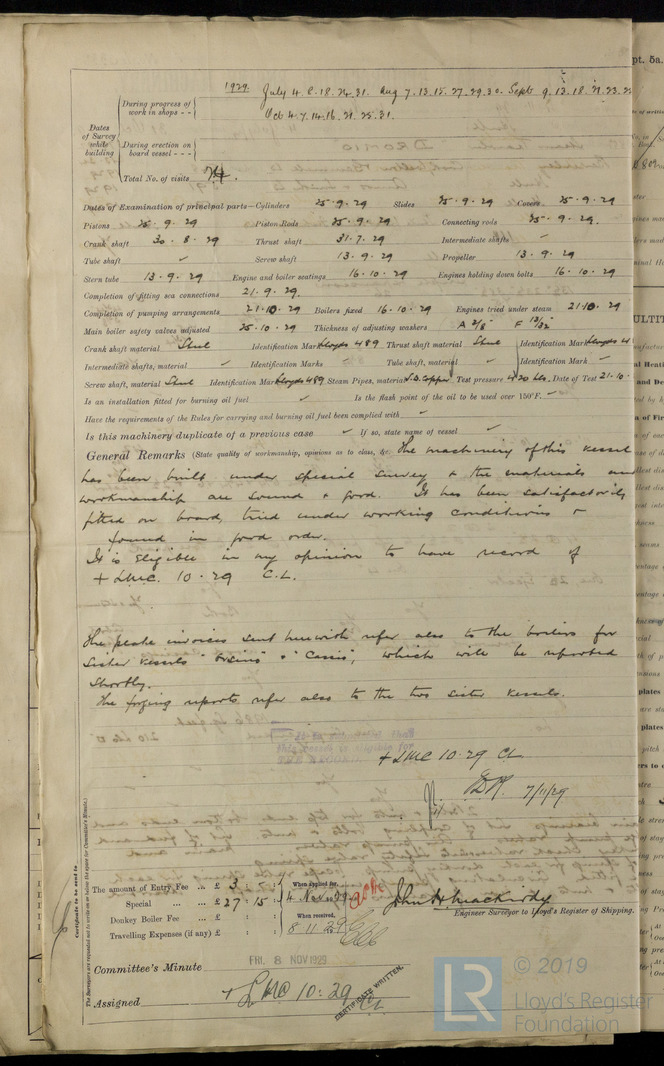 1929. July 4. 8. 18. 24. 31. Aug 7. 13. 15. 27. 29. 30. Sept 9. 13. 18. 21. 23. 25
During progress of work in shops - -
Oct 4. 7. 14. 16. 21. 25. 31.
Dates of Survey while building
During erection on board vessel - - -
Total No. of visits 24.
Dates of Examination of principal parts—Cylinders 25 . 9 . 29 Slides 25 . 9 . 29 Covers 25 . 9 . 29
Pistons 25 . 9 . 29 Piston Rods 25 . 9 . 29 Connecting rods 25 . 9 . 29.
Crank shaft 30 . 8 . 29 Thrust shaft 31 . 7 . 29 Intermediate shafts
Tube shaft Screw shaft 13 . 9 . 29 Propeller 13 . 9 . 29
Stern tube 13 . 9 . 29 Engine and boiler seatings 16 . 10 . 29 Engines holding down bolts 16 . 10 . 29
Completion of fitting sea connections 21 . 9 . 29.
Completion of pumping arrangements 21 . 10 . 29 Boilers fixed 16 . 10 . 29 Engines tried under steam 21 . 10 . 29
Main boiler safety valves adjusted 25 . 10 . 29 Thickness of adjusting washers A 3/8 F 13/32
Crank shaft material Steel Identification Mark Lloyds 489 Thrust shaft material Steel Identification Mark Lloyds
Intermediate shafts, material Identification Marks Tube shaft, material Identification Mark
Screw shaft, material Steel Identification Mark Lloyds 489 Steam Pipes, material S.D. Copper Test pressure 420 lbs. Date of Test 21 . 10 .
Is an installation fitted for burning oil fuel Is the flash point of the oil to be used over 150°F.
Have the requirements of the Rules for carrying and burning oil fuel been complied with
Is this machinery duplicate of a previous case If so, state name of vessel
General Remarks (State quality of workmanship, opinions as to class, &c. The machinery of this vessel
has been built under special survey & the materials and
workmanship are sound & good. It has been satisfactorily
fitted on board, tried under working conditions &
found in good order.
It is eligible in my opinion to have record of
+ LMC. 10 . 29 C.L.
The plate invoices sent herewith refer also to the boilers for
sister vessels "Orsino" & "Cassio", which will be reported
shortly.
The forging reports refer also to the two sister vessels.
this vessel is eligible for
THE RECORD
+ LMC 10 . 29 CL
7/11/29
Certificate to be sent to
The Surveyors are requested not to write on or below the space for Committee's Minute.
The amount of Entry Fee ... £ 3 : :
Special ... ... £ 27 : 15 :
Donkey Boiler Fee ... £ : :
Travelling Expenses (if any) £ : :
When applied for,
4 Nov 1929
When received,
8 . 11 . 29
John H Mackirdy
Engineer Surveyor to Lloyd's Register of Shipping.
Committee's Minute FRI. 8 NOV 1929
Assigned + LMC 10 : 29 CL
CERTIFICATE WRITTEN.
LR © 2019
Lloyd's Register
Foundation